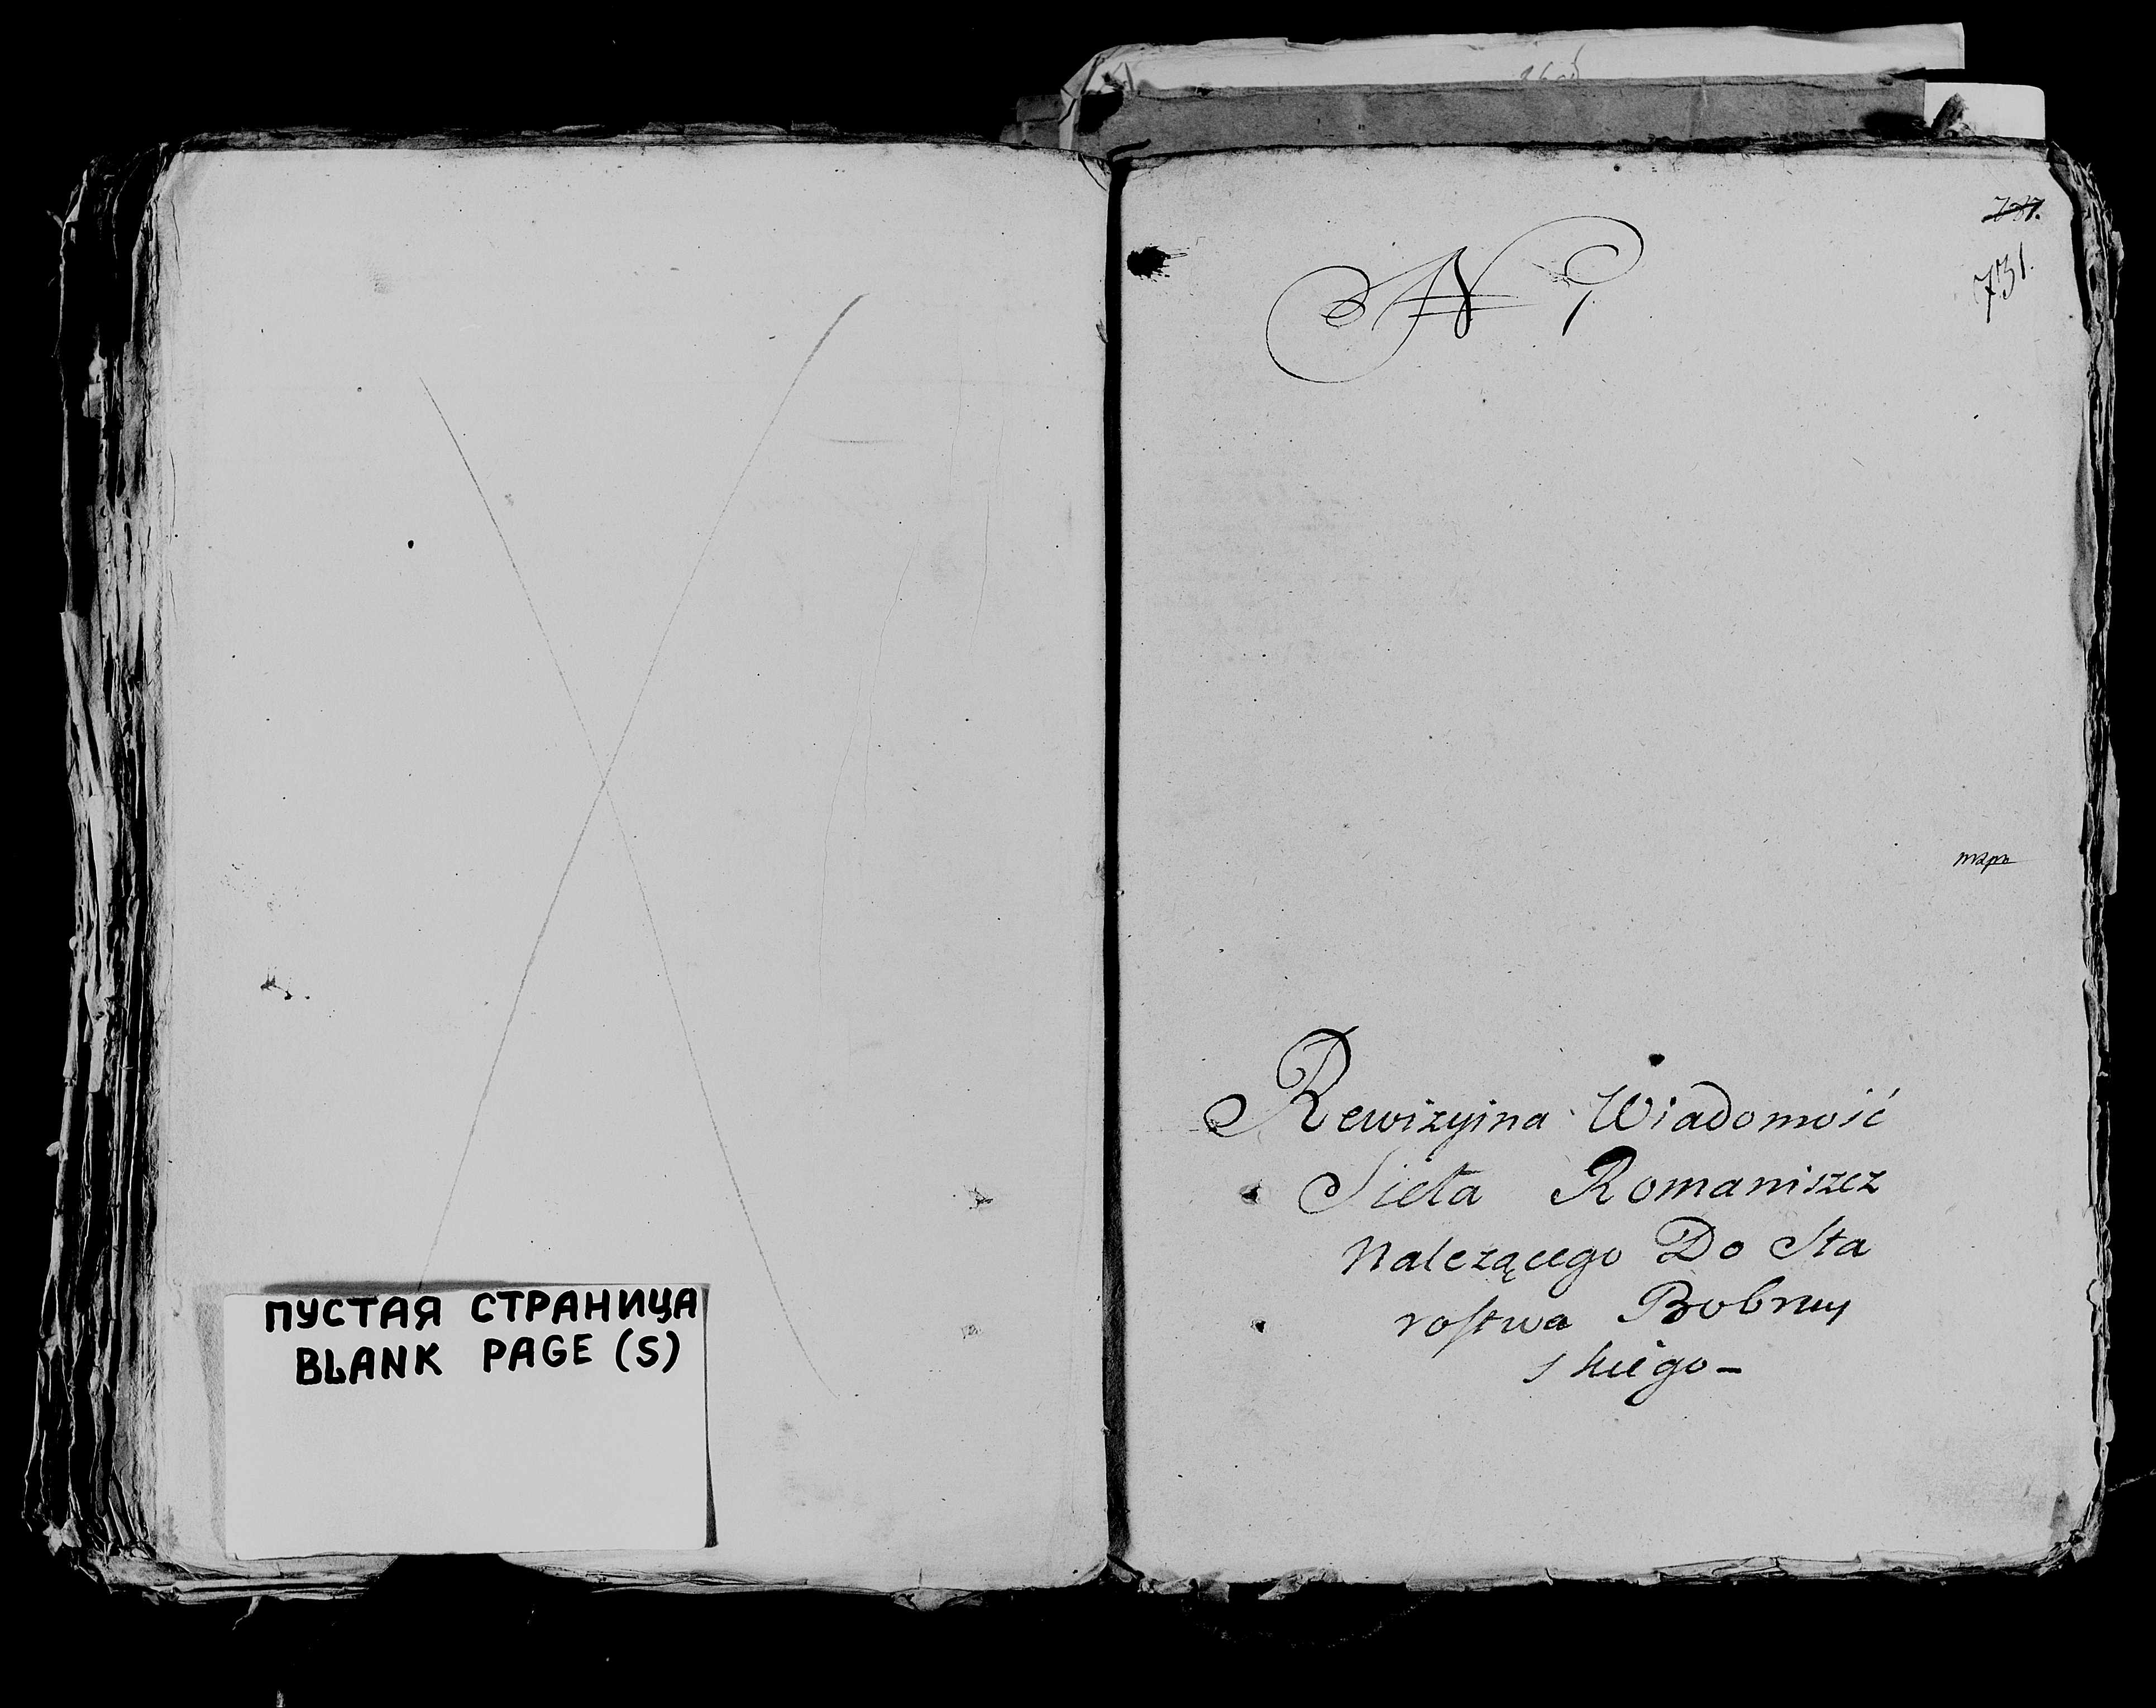 ПУСТАЯ СТРАНИЦА
BLANK PAGE (S)
731.
Rewizyina Wiadomość
Sieła Romaniszcz
Nalezącego Do Sta
rostwa Bobruy
skiego –